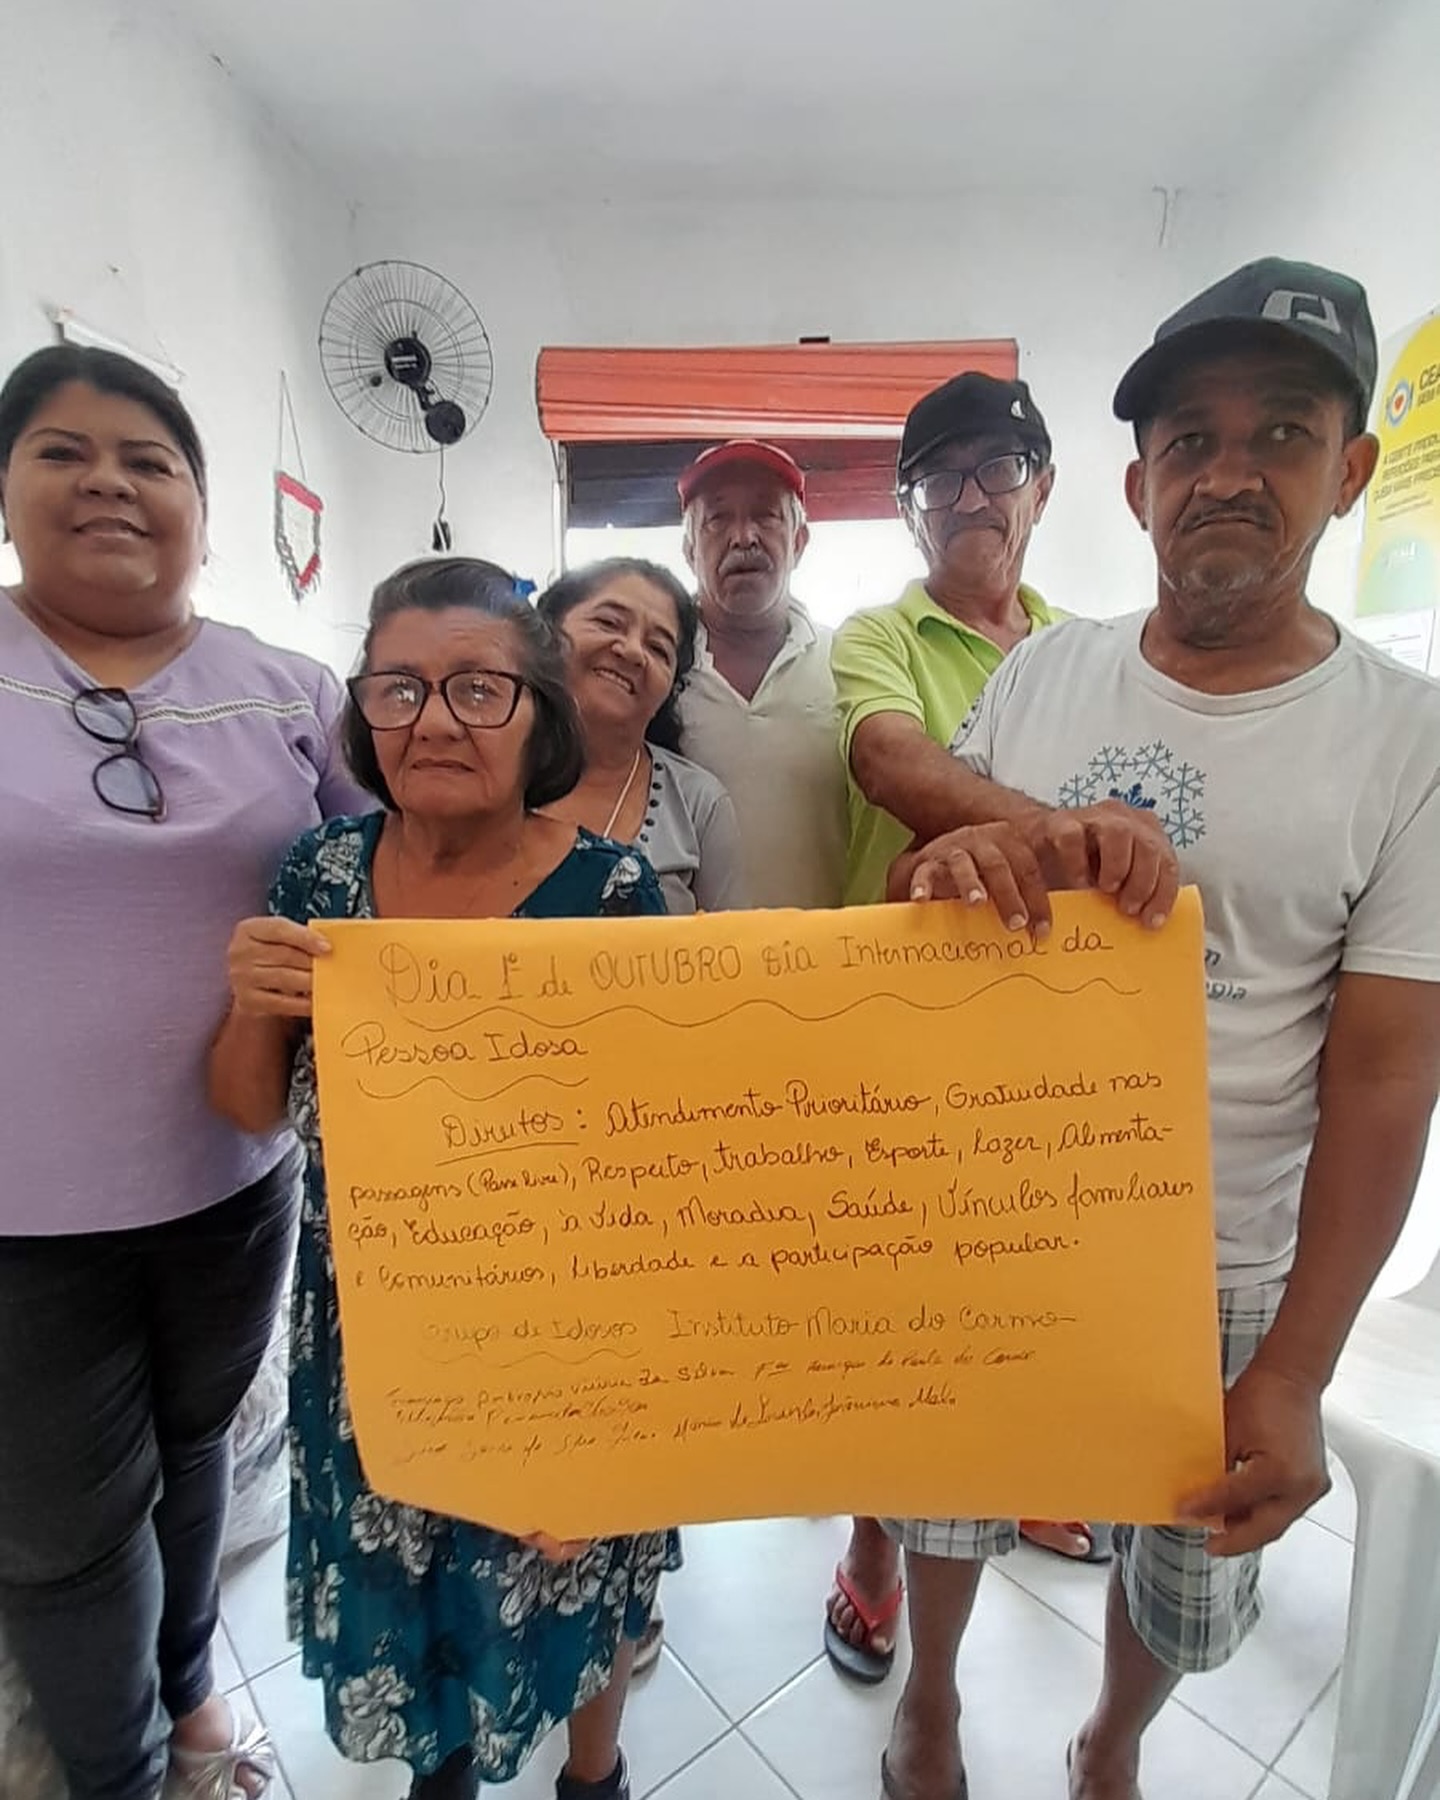 Dia 1º de OUTUBRO dia Internacional da
Pessoa Idosa
Direitos: Atendimento Prioritário, Gratuidade nas
passagens (Passe livre), Respeito, trabalho, Esporte, Lazer, Alimenta-
ção, Educação, à vida, Moradia, Saúde, Vínculos familiares
e Comunitários, liberdade e a participação popular.
Grupo de Idosos Instituto Maria do Carmo
da Silva
Maria de
CEA